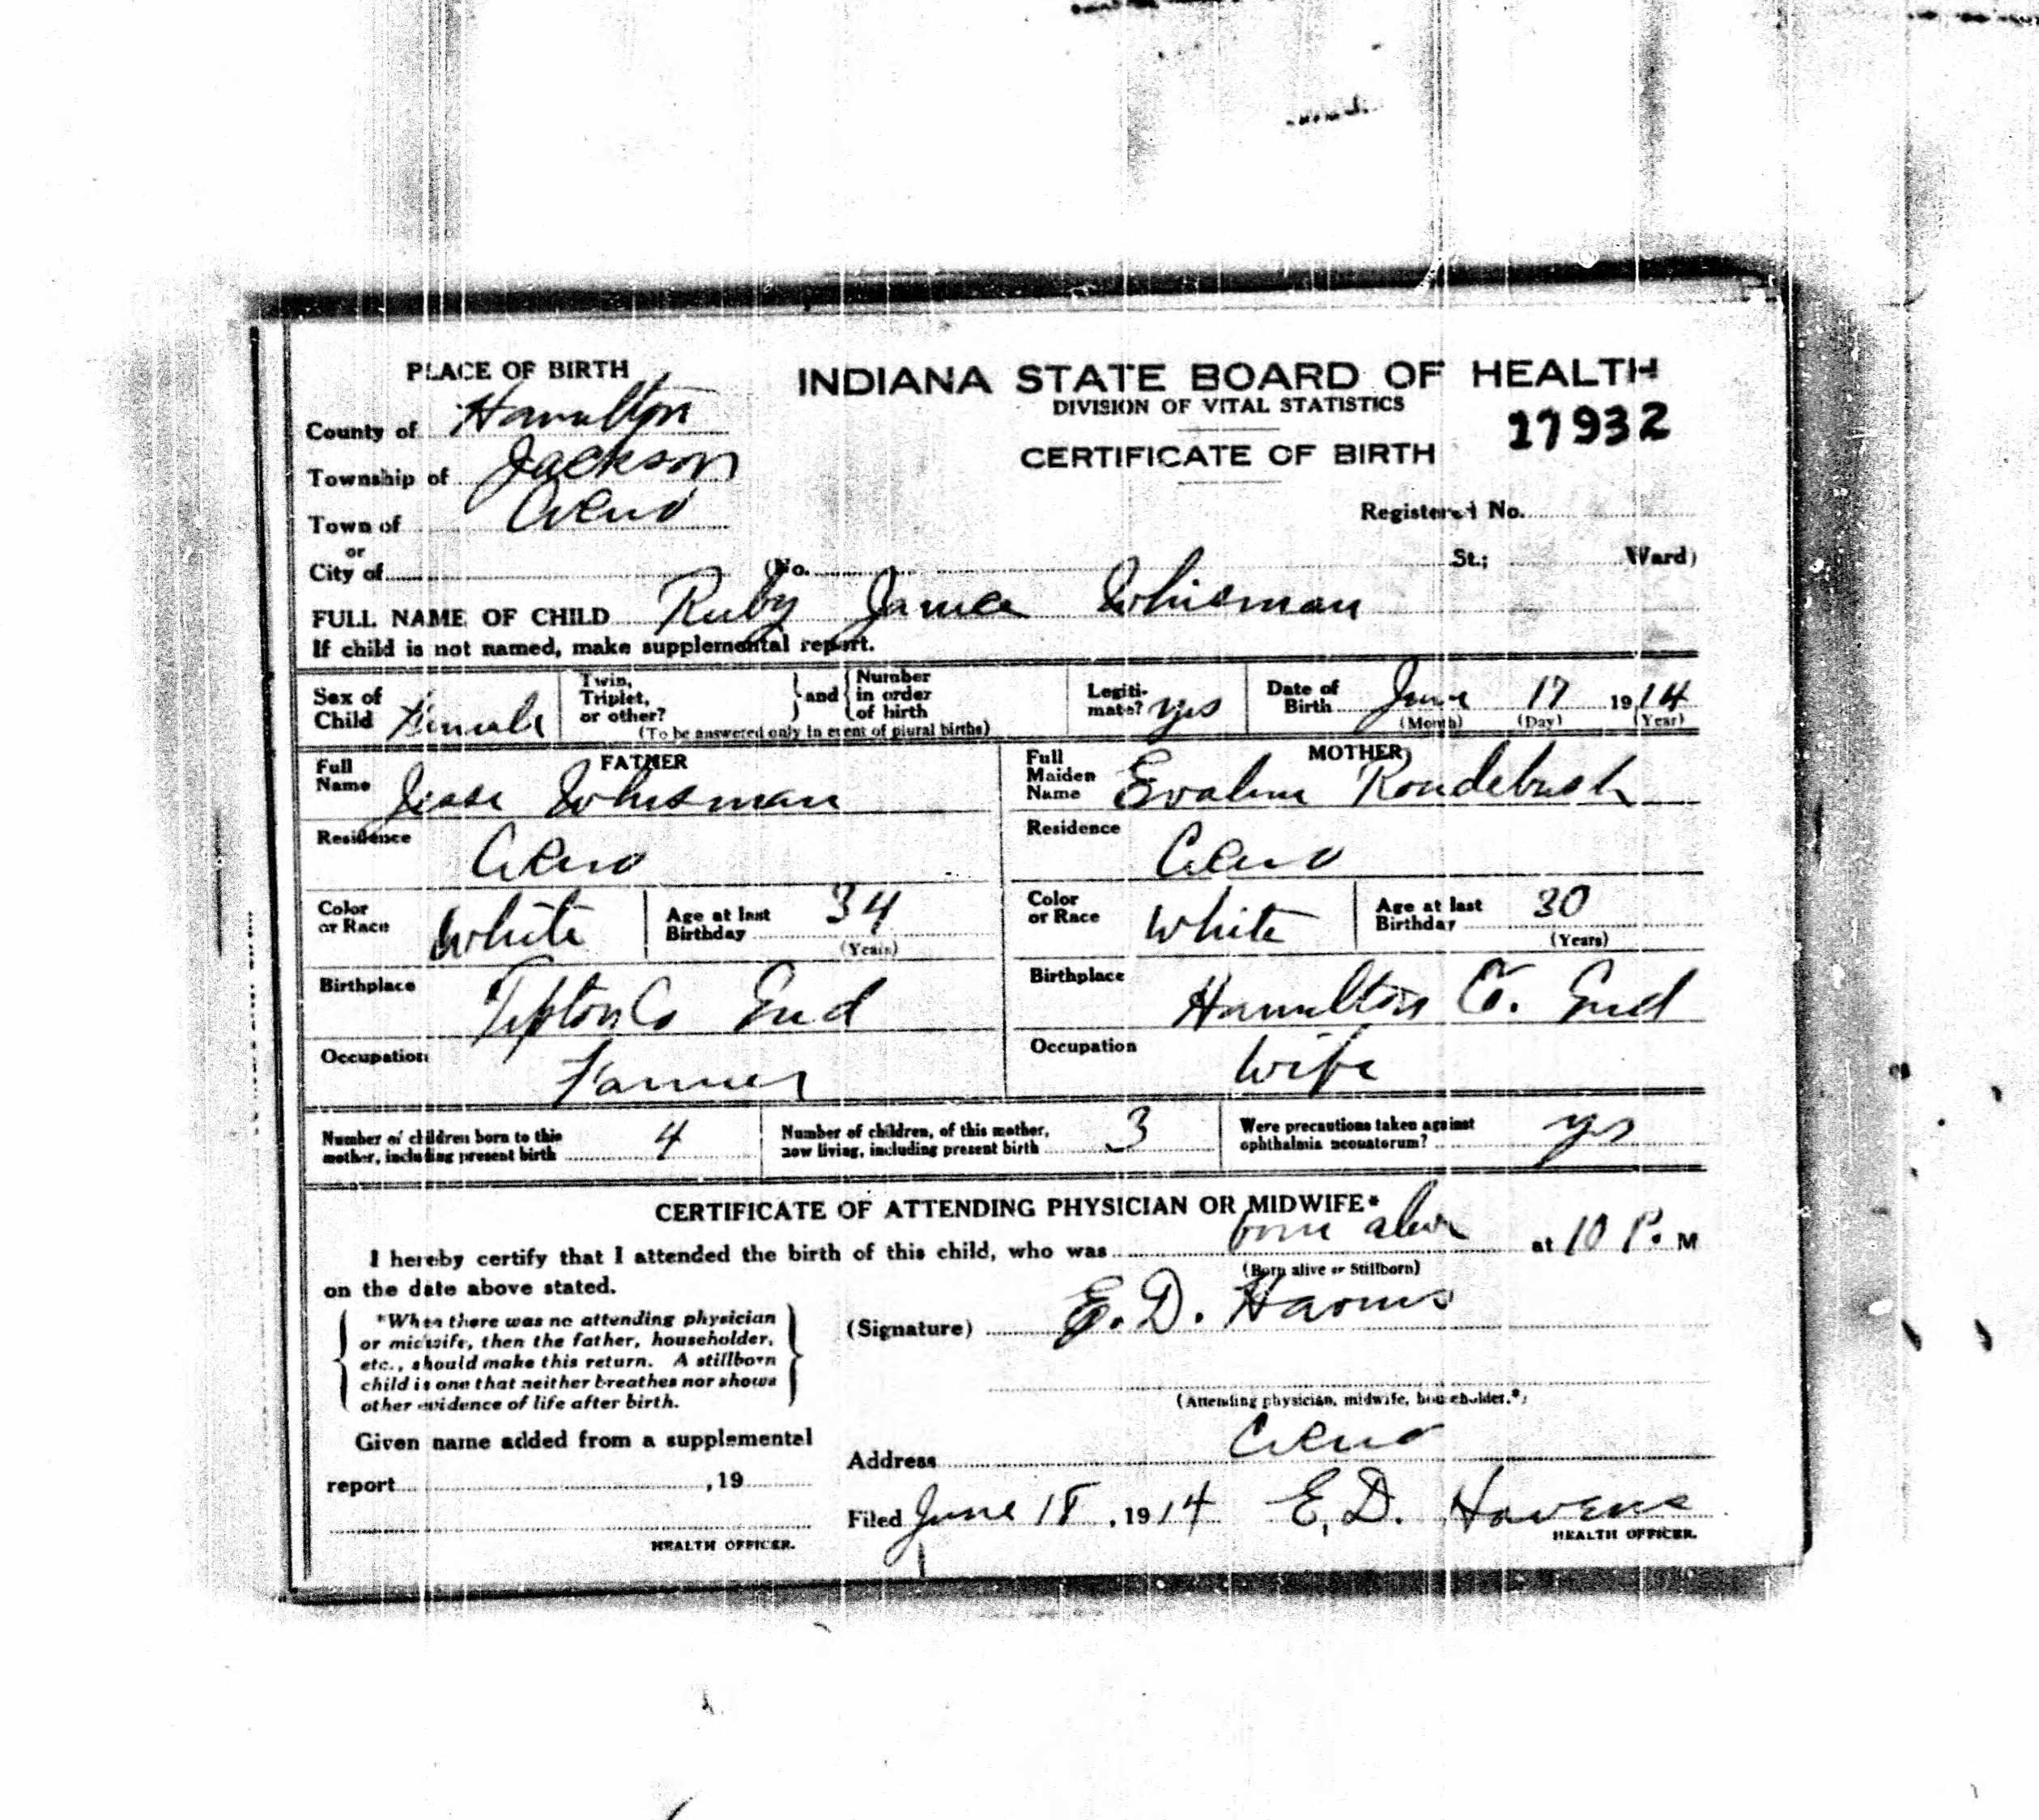 PLACE OF BIRTH
INDIANA STATE BOARD OF HEALTH
DIVISION OF VITAL STATISTICS
County of Hamilton
27932
CERTIFICATE OF BIRTH
Township of Jackson
Town of Cicero
Registered No.
or
City of (No. St.; Ward)
FULL NAME OF CHILD Ruby Whisman
If child is not named, make supplemental report.
Sex of Child Female
Twin, Triplet, or other? } and { Number in order of birth
(To be answered only in event of plural births)
Legiti- mate? yes
Date of Birth June 17 1914
(Month) (Day) (Year)
FATHER
Full Name Jesse Whisman
MOTHER
Full Maiden Name Roudebush
Residence Cicero
Residence Cicero
Color or Race White
Age at last Birthday 34
(Years)
Color or Race White
Age at last Birthday 30
(Years)
Birthplace Tipton Co Ind
Birthplace Hamilton Co. Ind
Occupation Farmer
Occupation Wife
Number of children born to this mother, including present birth 4
Number of children, of this mother, now living, including present birth 3
Were precautions taken against ophthalmia neonatorum? yes
CERTIFICATE OF ATTENDING PHYSICIAN OR MIDWIFE*
I hereby certify that I attended the birth of this child, who was born alive at 10 P. M
(Born alive or Stillborn)
on the date above stated.
*When there was no attending physician
or midwife, then the father, householder,
etc., should make this return. A stillborn
child is one that neither breathes nor shows
other evidence of life after birth.
(Signature) E. D. Havens
(Attending physician, midwife, householder.*)
Given name added from a supplemental
report , 19
Address Cicero
Filed June 18, 1914 E. D. Havens
HEALTH OFFICER.
HEALTH OFFICER.